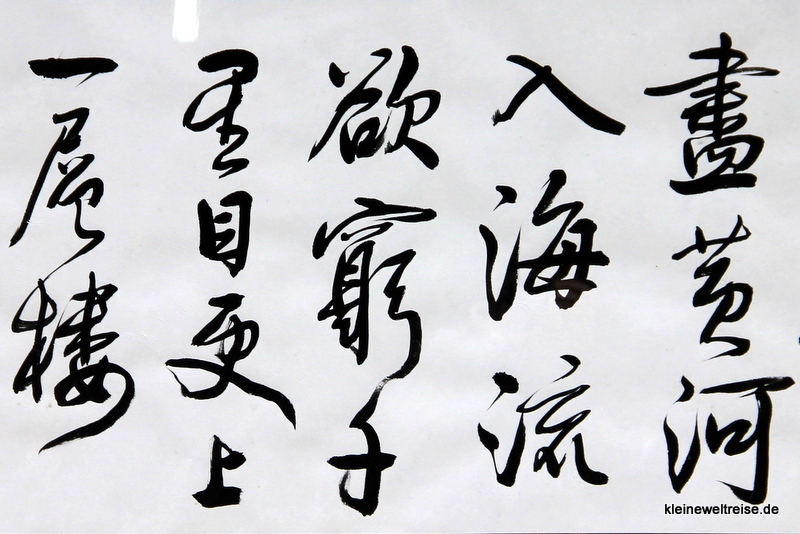 盡黃河
入海流
欲窮千
里目更上
一層樓
kleineweltreise.de